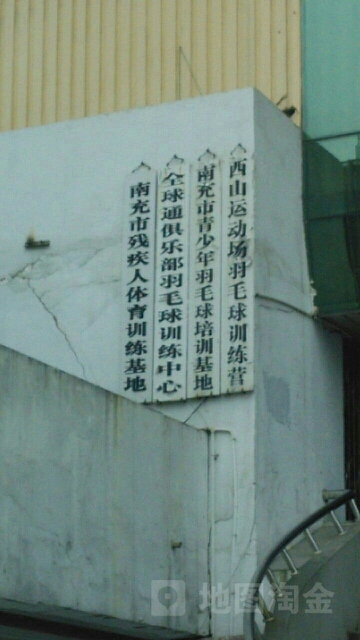 西山运动场羽毛球训练营
南充市青少年羽毛球培训基地
全球通俱乐部羽毛球训练中心
南充市残疾人体育训练基地
地图淘金